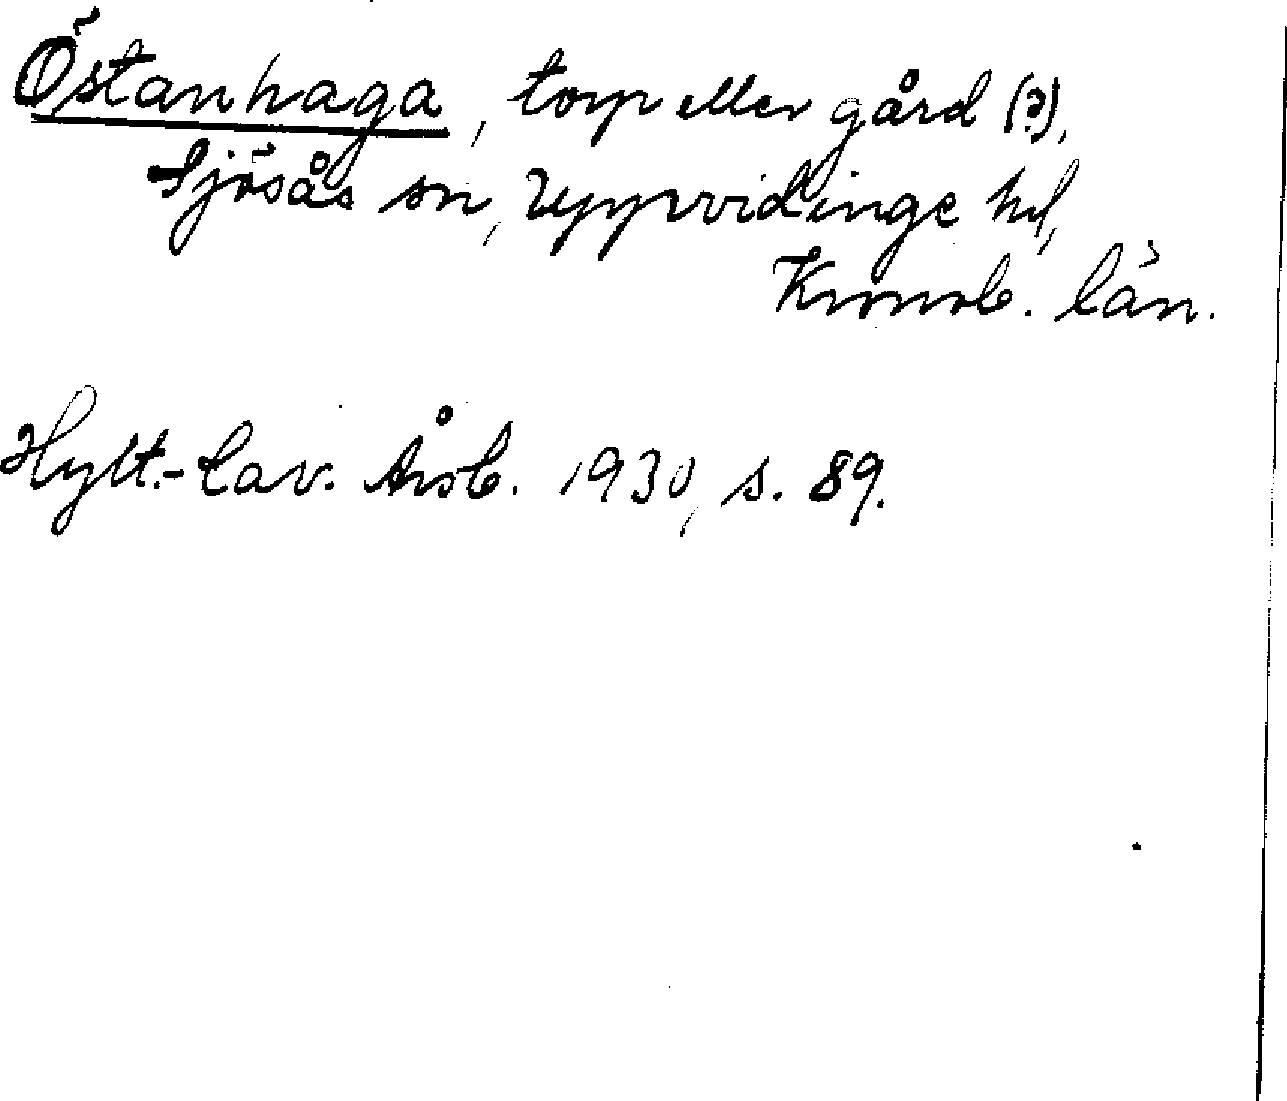 Östanhaga, torp eller gård (?),
Sjösås sn, Uppvidinge hd,
Kronob. län.
Hylt.-Cav. Årsb. 1930, s. 89.